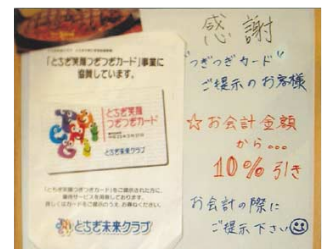 「とちぎ笑顔つぎつぎカード」事業に
協賛しています。
とちぎ笑顔
つぎつぎカード
とちぎ未来クラブ
「とちぎ笑顔つぎつぎカード」をご提示された方に、
優待サービスを実施しております。
詳しくはカードをご提示のうえ、お尋ねください。
とちぎ未来クラブ
感謝
"つぎつぎカード"
ご提示のお客様
☆お会計金額
から...
10%引き
お会計の際に
ご提示下さい☺